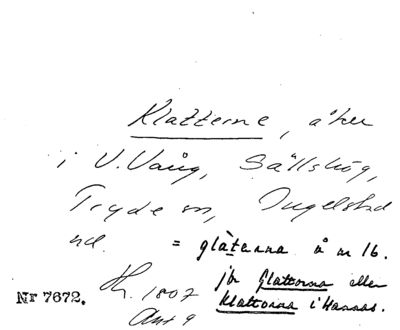 Klatterne, åker
i V. Vång, Sällshög,
Tryde sn, Ingelstad
hd. = glàterna å n 16.
jfr Glattorna eller
Klattorna i Hannas.
Nr 7672. 1807
Akt 9